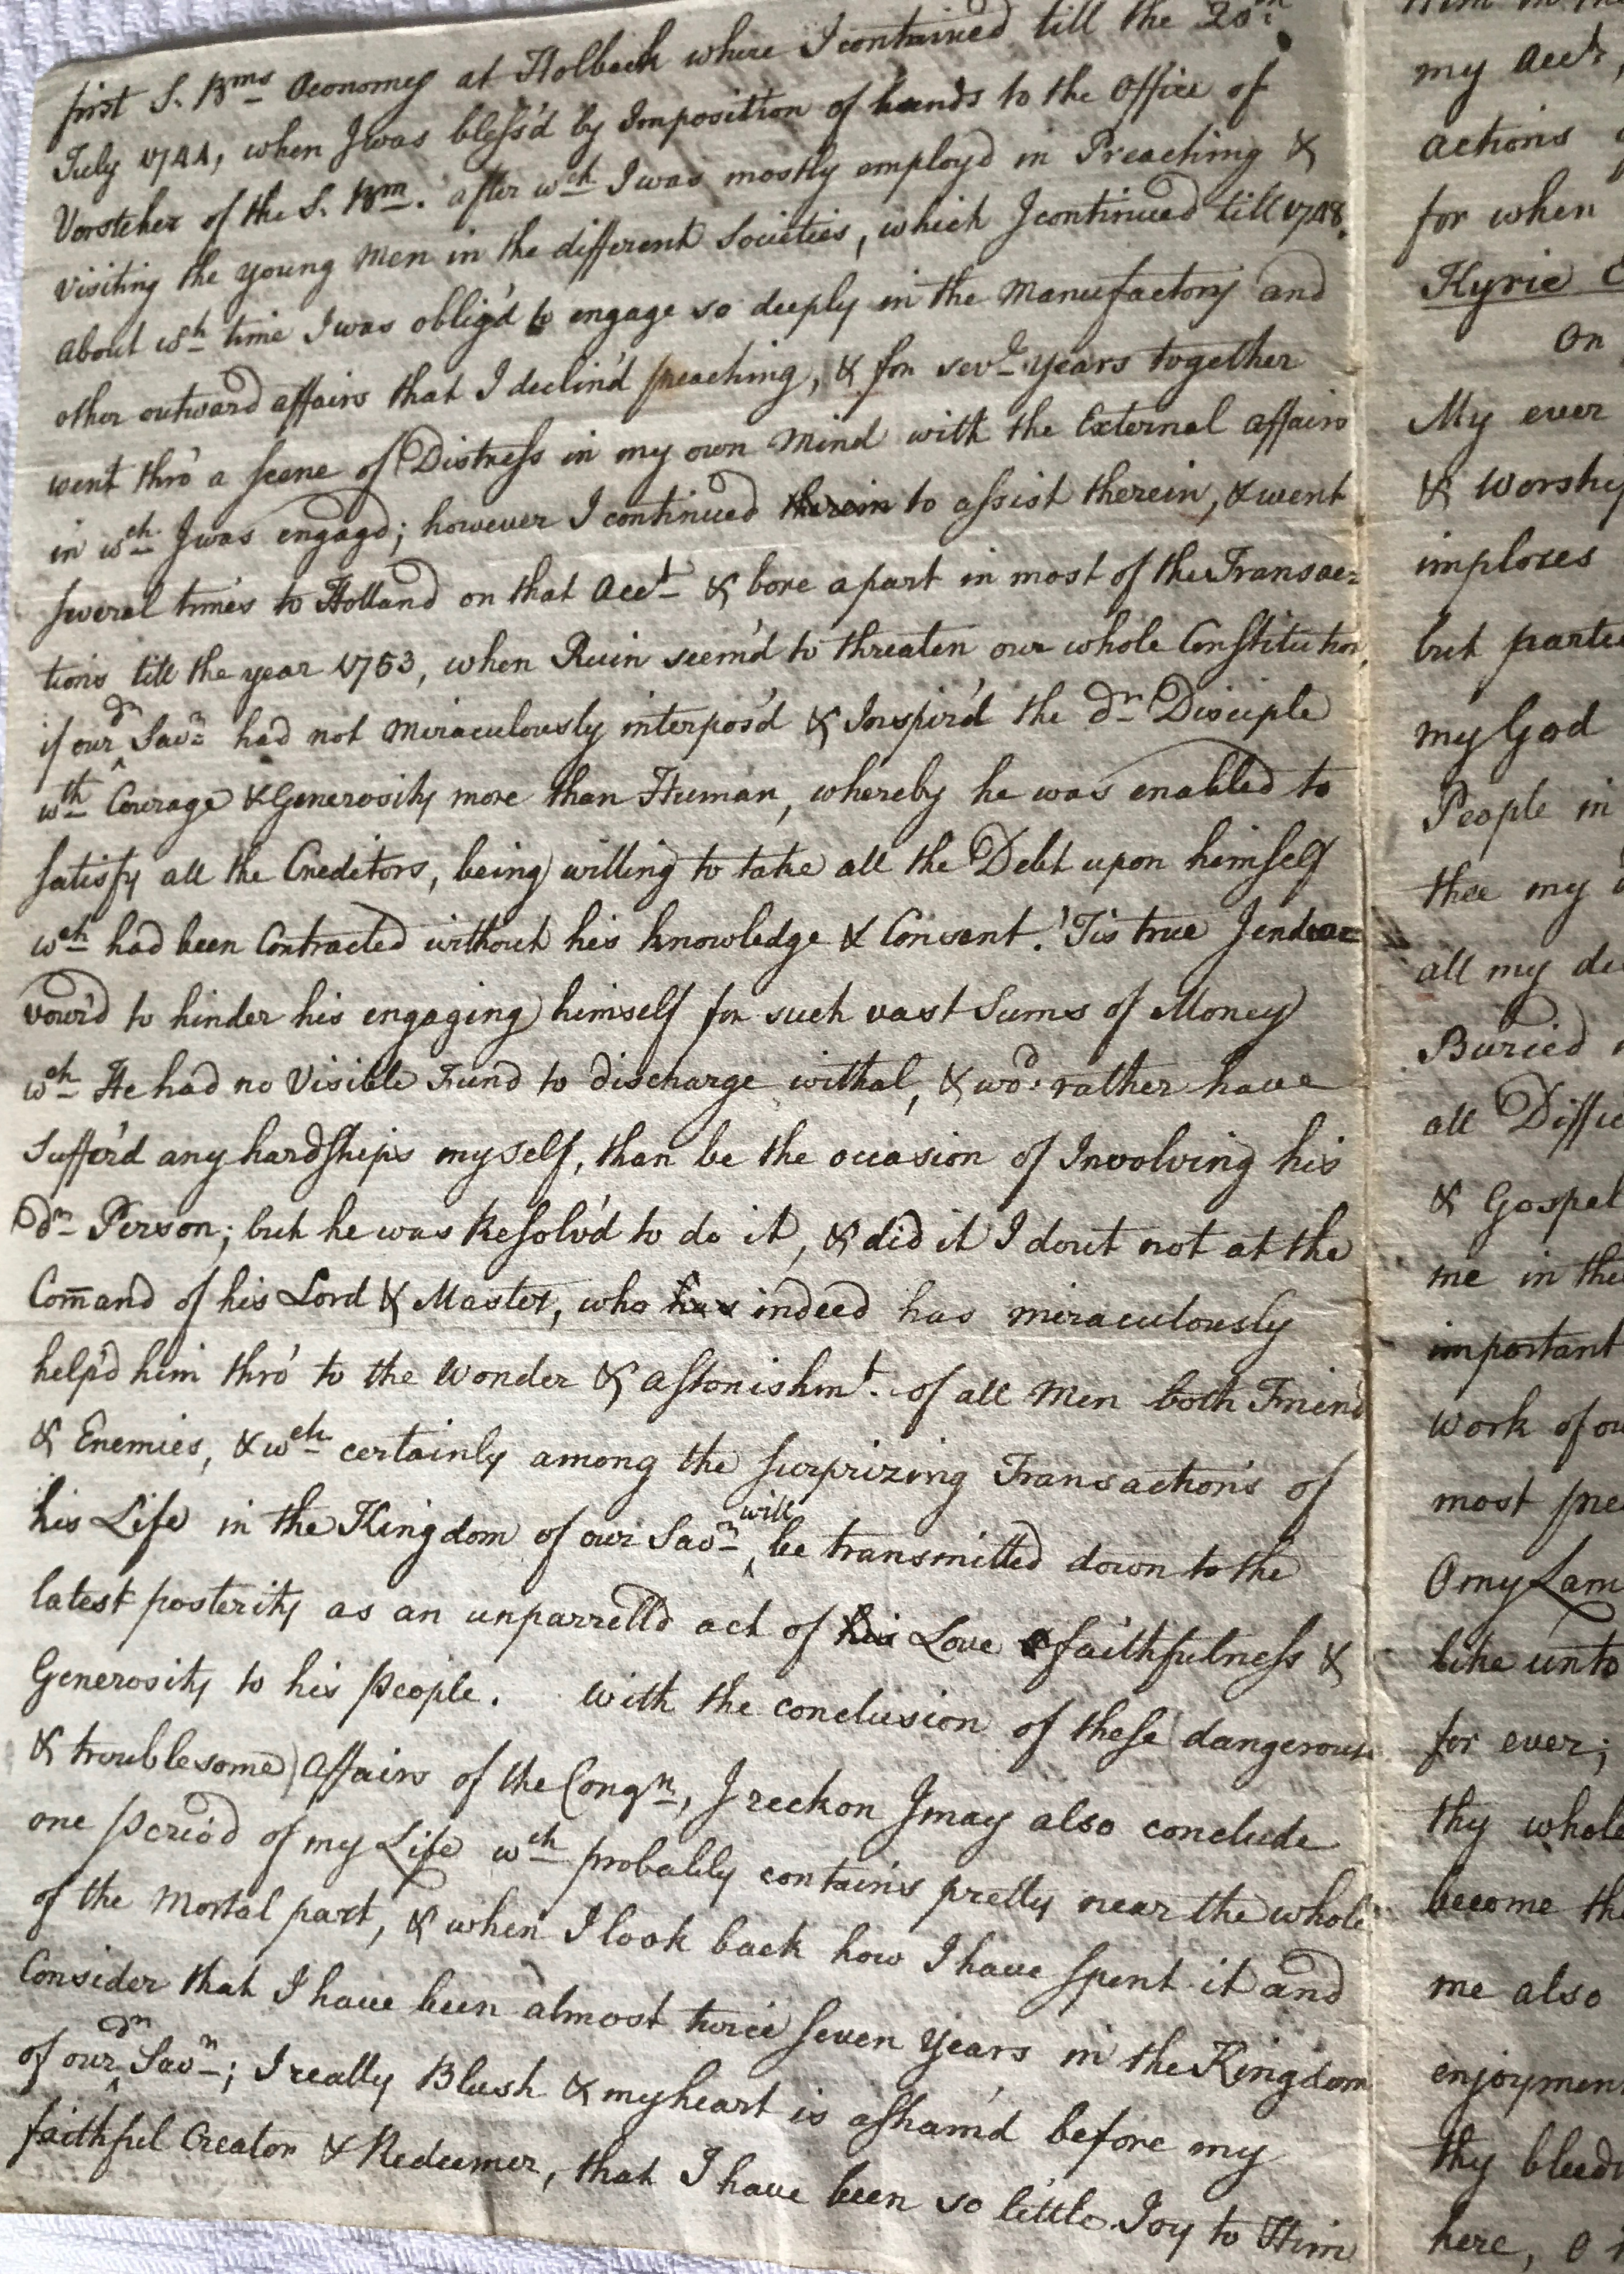 first S. Brns Oeconomy at Holbeck where I continued till the 20th
July 1744, when I was bless'd by Imposition of hands to the Office of
Vorsteher of the S. Brn. after wch I was mostly employd in Preaching &
visiting the young Men in the different Societies, which I continued till 1748.
About wch time I was oblig'd to engage so deeply in the Manufactory and
other outward affairs that I declin'd preaching, & for sevl years together
went thro' a scene of Distress in my own Mind with the External affairs
in wch I was engagd; however I continued therein to assist therein, & went
several times to Holland on that Acct & bore a part in most of the Transac=
tions till the year 1753, when Ruin seem'd to threaten our whole Constitution,
if our dr Savr had not Miraculously interpos'd & Inspir'd the dr Disciple
wth Courage & Generosity more than Human, whereby he was enabled to
satisfy all the Creditors, being willing to take all the Debt upon himself
wch had been Contracted without his knowledge & Consent. 'Tis true I endea=
vour'd to hinder his engaging himself for such vast Sums of Money
wch He had no Visible Fund to discharge withal, & wod. rather have
Suffer'd any hardships myself, than be the occasion of Involving his
dr Person; but he was Resolv'd to do it, & did it I dout not at the
Com̄and of his Lord & Master, who has indeed has miraculously
help'd him thro' to the Wonder & astonishmt. of all Men both Friend
& Enemies, & wch certainly among the surprizing Transactions of
his Life in the Kingdom of our Savr will be transmitted down to the
latest posterity as an unparrelld act of his Love & faithfulness &
Generosity to his people. With the conclusion of these dangerous
& troublesome Affairs of the Congn, I reckon I may also conclude
one period of my Life wch probably contains pretty near the whole
of the Mortal part, & when I look back how I have spent it and
Consider that I have been almost twice seven Years in the Kingdom
of our dr Savr; I really Blush & my heart is asham'd before my
faithful Creator & Redeemer, that I have been so little Joy to Him
my Acct,
actions
for when
Kyrie
On
My ever
& worship
implores
but
my God
People in
thee my
all my
Buried
all
& Gospel
me in the
important
work of
most
O my Lam
like unto
for ever;
thy whole
become
me also
enjoymen
thy
here, O